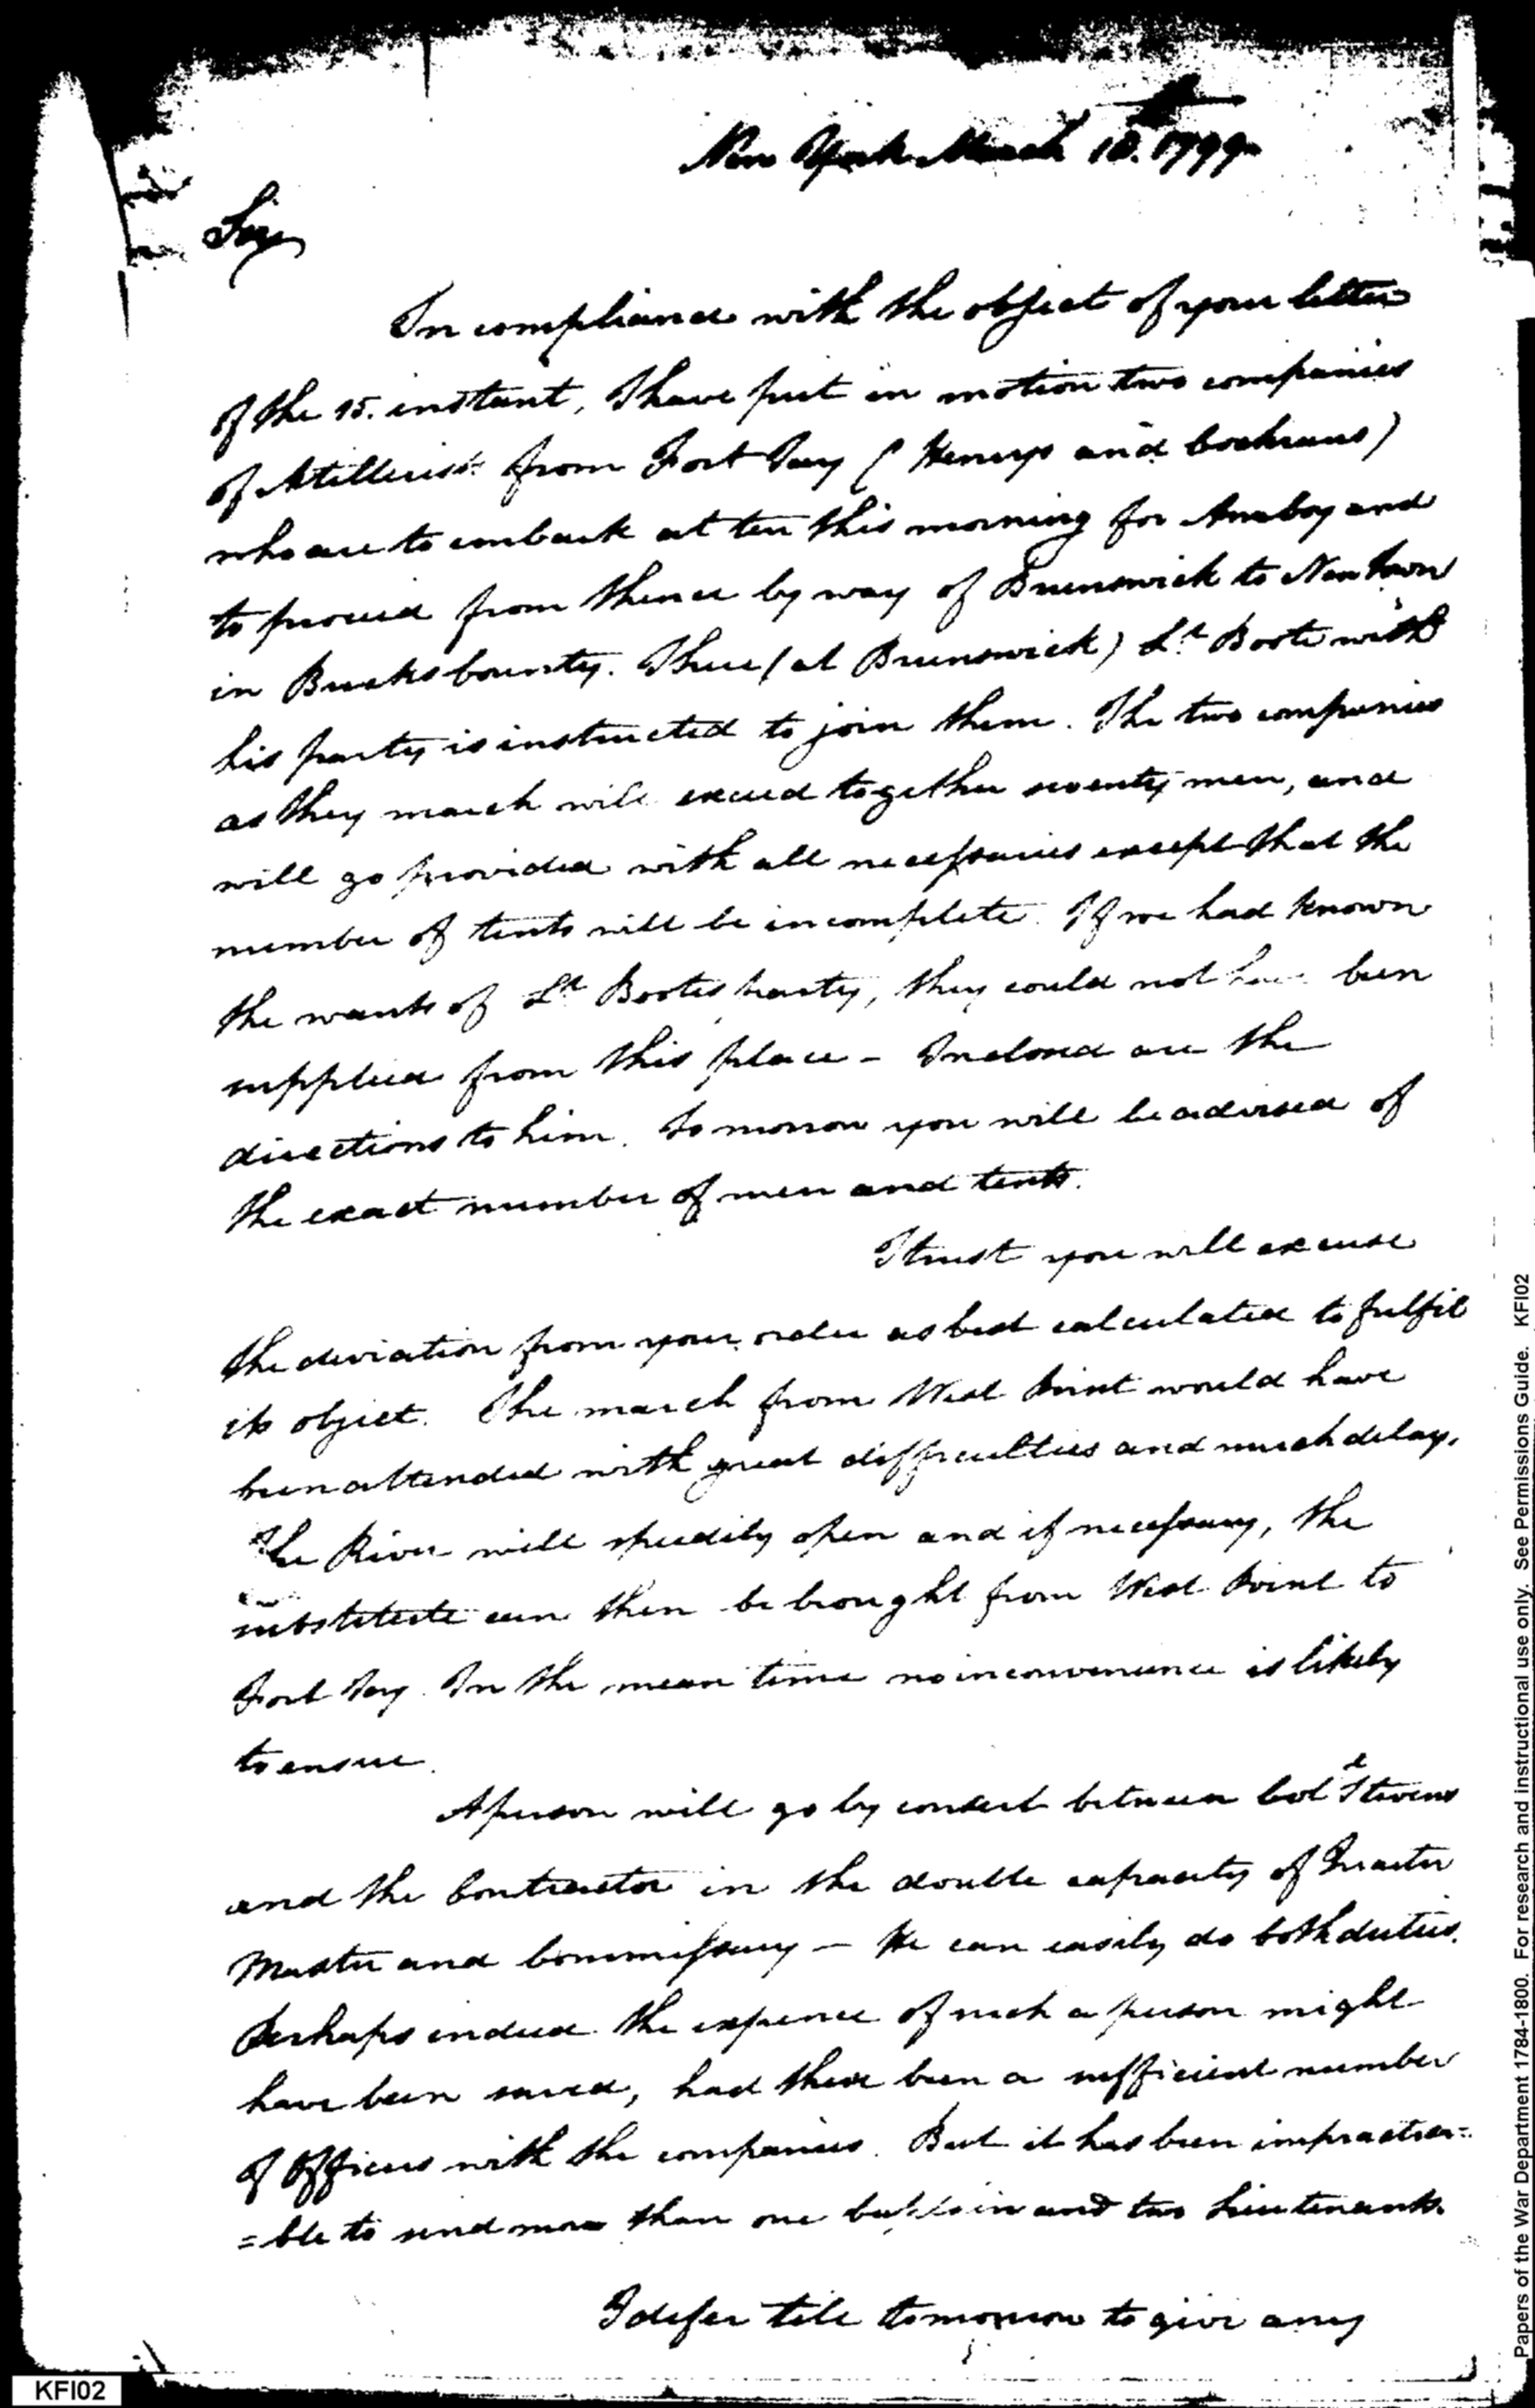 New York March 18. 1799
Sir
In compliance with the object of your letter
of the 15. instant, I have put in motion two companies
of Artillerists from Fort Jay (Henrys and Cochrans)
who are to embark at ten this morning for Amboy and
to proceed from thence by way of Brunswick to New Town
in Bucks County. There (at Brunswick) Lt. Boote with
his party is instructed to join them. The two companies
as they march will exceed together seventy men, and
will go provided with all necessaries except that the
number of tents will be incomplete. If we had known
the wants of Lt Bootes party, they could not have been
supplied from this place - Inclosed are the
directions to him. Tomorrow you will be advised of
the exact number of men and tents.
I trust you will excuse
the deviation from your order as best calculated to fulfil
its object. The march from West Point would have
been attended with great difficulties and much delay.
The River will speedily open and if necessary, the
substitute can then be brought from West Point to
Fort Jay. In the mean time no inconvenience is likely
to ensue.
A person will go by concert between Col Stevens
and the Contractor in the double capacity of Quarter
Master and Commissary - He can easily do both duties.
Perhaps indeed the expence of such a person might
have been saved, had there been a sufficient number
of Officers with the companies. But it has been impractica=
=ble to send more than one Captain and two Lieutenants.
I defer till tomorrow to give any
KFI02
Papers of the War Department 1784-1800. For research and instructional use only. See Permissions Guide. KFI02